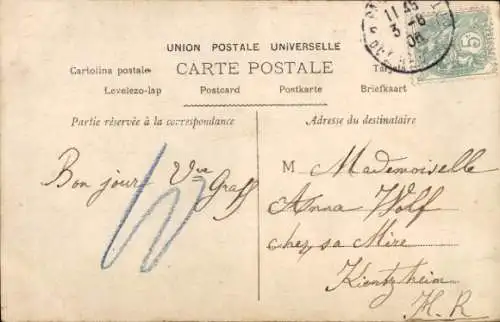 11 45
3 - 8
06
5
UNION POSTALE UNIVERSELLE
Cartolina postale
CARTE POSTALE
Levelezo-lap
Postcard
Postkarte
Briefkaart
Partie réservée à la correspondance
Adresse du destinataire
Bon jour Vve
Graff
10
M Mademoiselle
Anna Wolf
chez sa Mire
Kientzheim
H. R